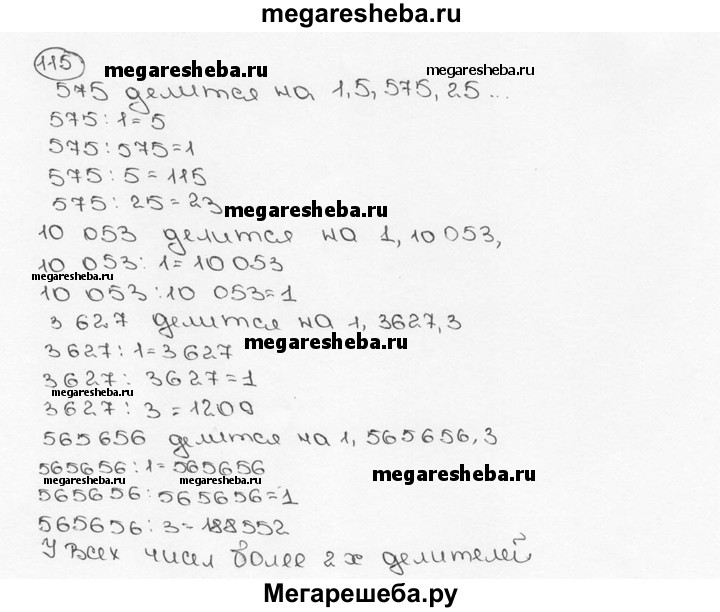 megaresheba.ru
115
megaresheba.ru megaresheba.ru
575 делится на 1,5,575,25...
575:1=5
575:575=1
575:5=115
575:25=23
megaresheba.ru
10 053 делится на 1,10 053,
10 053:1=10 053
megaresheba.ru
10 053:10 053=1
3 627 делится на 1,3627,3
3627:1=3627
megaresheba.ru
3627:3627=1
megaresheba.ru
3627:3=1209
565656 делится на 1,565656,3
565656:1=565656
megaresheba.ru megaresheba.ru megaresheba.ru
565656:565656=1
565656:3=188552
У всех чисел более 2х делителей
Мегарешеба.ру